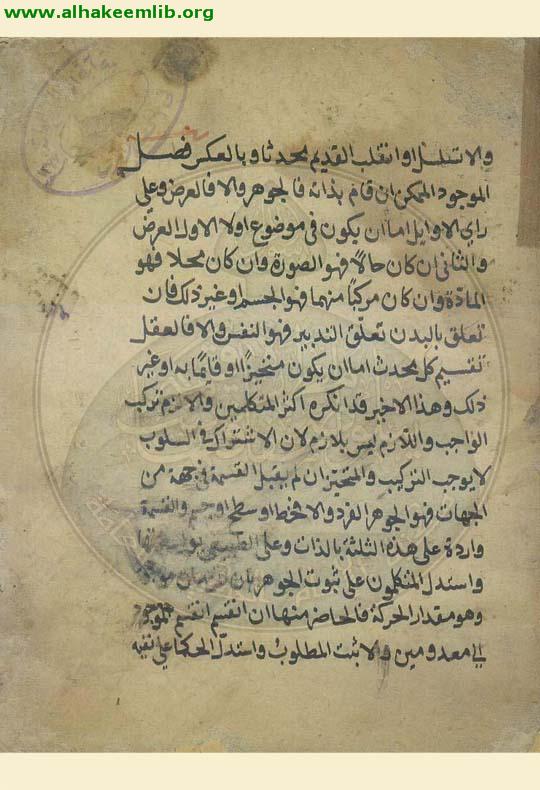 www.alhakeemlib.org
والا تسلسل او انقلب القديم محدثا وبالعكس فصل
الموجود الممكن ان قام بذاته فالجوهر والا فالعرض وعلى
راي الاوايل اما ان يكون في موضوع اولا الاول العرض
والثاني ان كان حالا فهو الصورة وان كان محلا فهو
المادة وان كان مركبا منهما فهو الجسم او غير ذلك فان
تعلق بالبدن تعلق التدبير فهو النفس والا فالعقل
تقسيم كل محدث اما ان يكون متحيزا او قايما به او غير
ذلك وهذا الاخير قد انكره اكثر المتكلمين والا لزم تركب
الواجب واللازم ليس بلازم لان الاشتراك في السلوب
لا يوجب التركيب والمتحيز ان لم يقبل القسمة في جهة من
الجهات فهو الجوهر الفرد والا فخط او سطح او جسم والقسمة
واردة على هذه الثلثة بالذات وعلى
واستدل المتكلمون على ثبوت الجوهر بان الزمان
وهو مقدار الحركة فالحاضر منها ان انقسم انقسم الموجود
الى معدومين والا ثبت المطلوب واستدل الحكما على نفيه